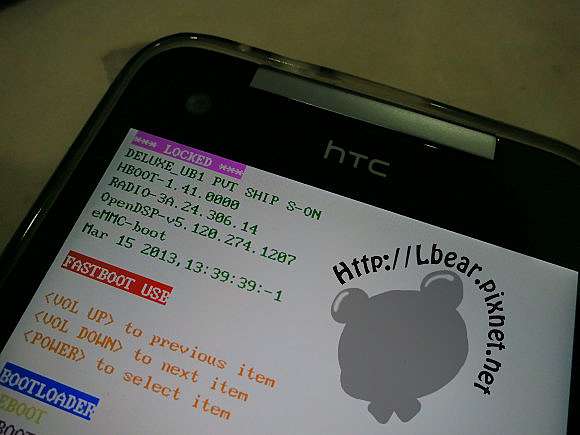 hTC
*** LOCKED ***
DELUXE_UB1 PVT SHIP S-ON
HBOOT-1.41.0000
RADIO-3A.24.306.14
OpenDSP-v5.120.274.1207
eMMC-boot
Mar 15 2013,13:39:39:-1
FASTBOOT USB
<VOL UP> to previous item
<VOL DOWN> to next item
<POWER> to select item
BOOTLOADER
EBOOT
Http://Lbear.pixnet.net